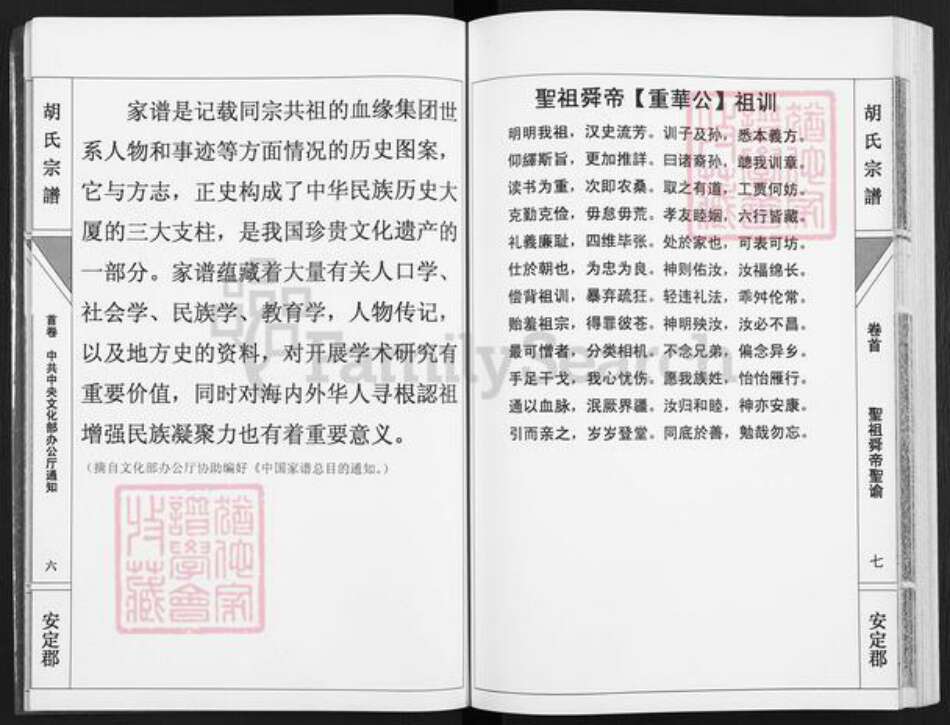 胡氏宗譜
首卷 中共中央文化部办公厅通知
六
安定郡
家谱是记载同宗共祖的血缘集团世
系人物和事迹等方面情况的历史图案，
它与方志，正史构成了中华民族历史大
厦的三大支柱，是我国珍贵文化遗产的
一部分。家谱蕴藏着大量有关人口学、
社会学、民族学、教育学，人物传记，
以及地方史的资料，对开展学术研究有
重要价值，同时对海内外华人寻根認祖
增强民族凝聚力也有着重要意义。
（摘自文化部办公厅协助编好《中国家谱总目的通知。）
猶他家
譜學會
收藏
FamilySearch
聖祖舜帝【重華公】祖训
明明我祖，汉史流芳。训子及孙，悉本義方。
仰繹斯旨，更加推詳。曰诸裔孙，聽我训章。
读书为重，次即农桑。取之有道，工贾何妨。
克勤克俭，毋怠毋荒。孝友睦婣，六行皆藏。
礼義廉耻，四维毕张。处於家也，可表可坊。
仕於朝也，为忠为良。神则佑汝，汝福绵长。
偿背祖训，暴弃疏狂。轻违礼法，乖舛伦常。
贻羞祖宗，得罪彼苍。神明殃汝，汝必不昌。
最可憎者，分类相机。不念兄弟，偏念异乡。
手足干戈，我心忧伤。愿我族姓，怡怡雁行。
通以血脉，泯厥界疆。汝归和睦，神亦安康。
引而亲之，岁岁登堂。同底於善，勉哉勿忘。
猶他家
譜學會
收藏
胡氏宗譜
卷首 聖祖舜帝聖谕
七
安定郡